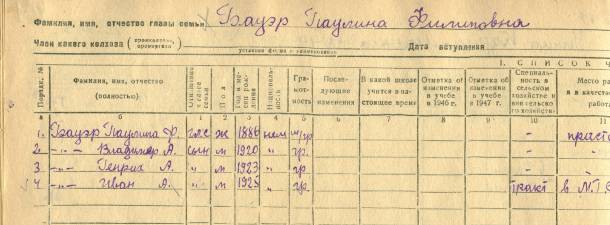 Фамилия, имя, отчество главы семьи Бауэр Паулина Филиповна
Член какого колхоза (промколхоза, промартели)
Дата вступления
I. СПИСОК Ч
Порядк. № Фамилия, имя, отчество (полностью) Отношение к главе семьи Пол Год и месяц рождения Национальность Грамотность Последующие изменения В какой школе учится в настоящее время Отметка об изменении в учебе в 1946 г. Отметка об изменении в учебе в 1947 г. Специальность в сельском хозяйстве и внесельского хозяйства Место ра и в качест работ
а б 1 2 3 4 5 6 7 8 9 10 11
1. Бауэр Паулина Ф. ж 1886 нем н/гр. -
2. -"- Владимир А. сын м 1920 " гр. - "
3 -"- Генрих А. " м 1923 " гр. - "
4 -"- Иван А. " м 1925 " гр. тракт в М.Т.С